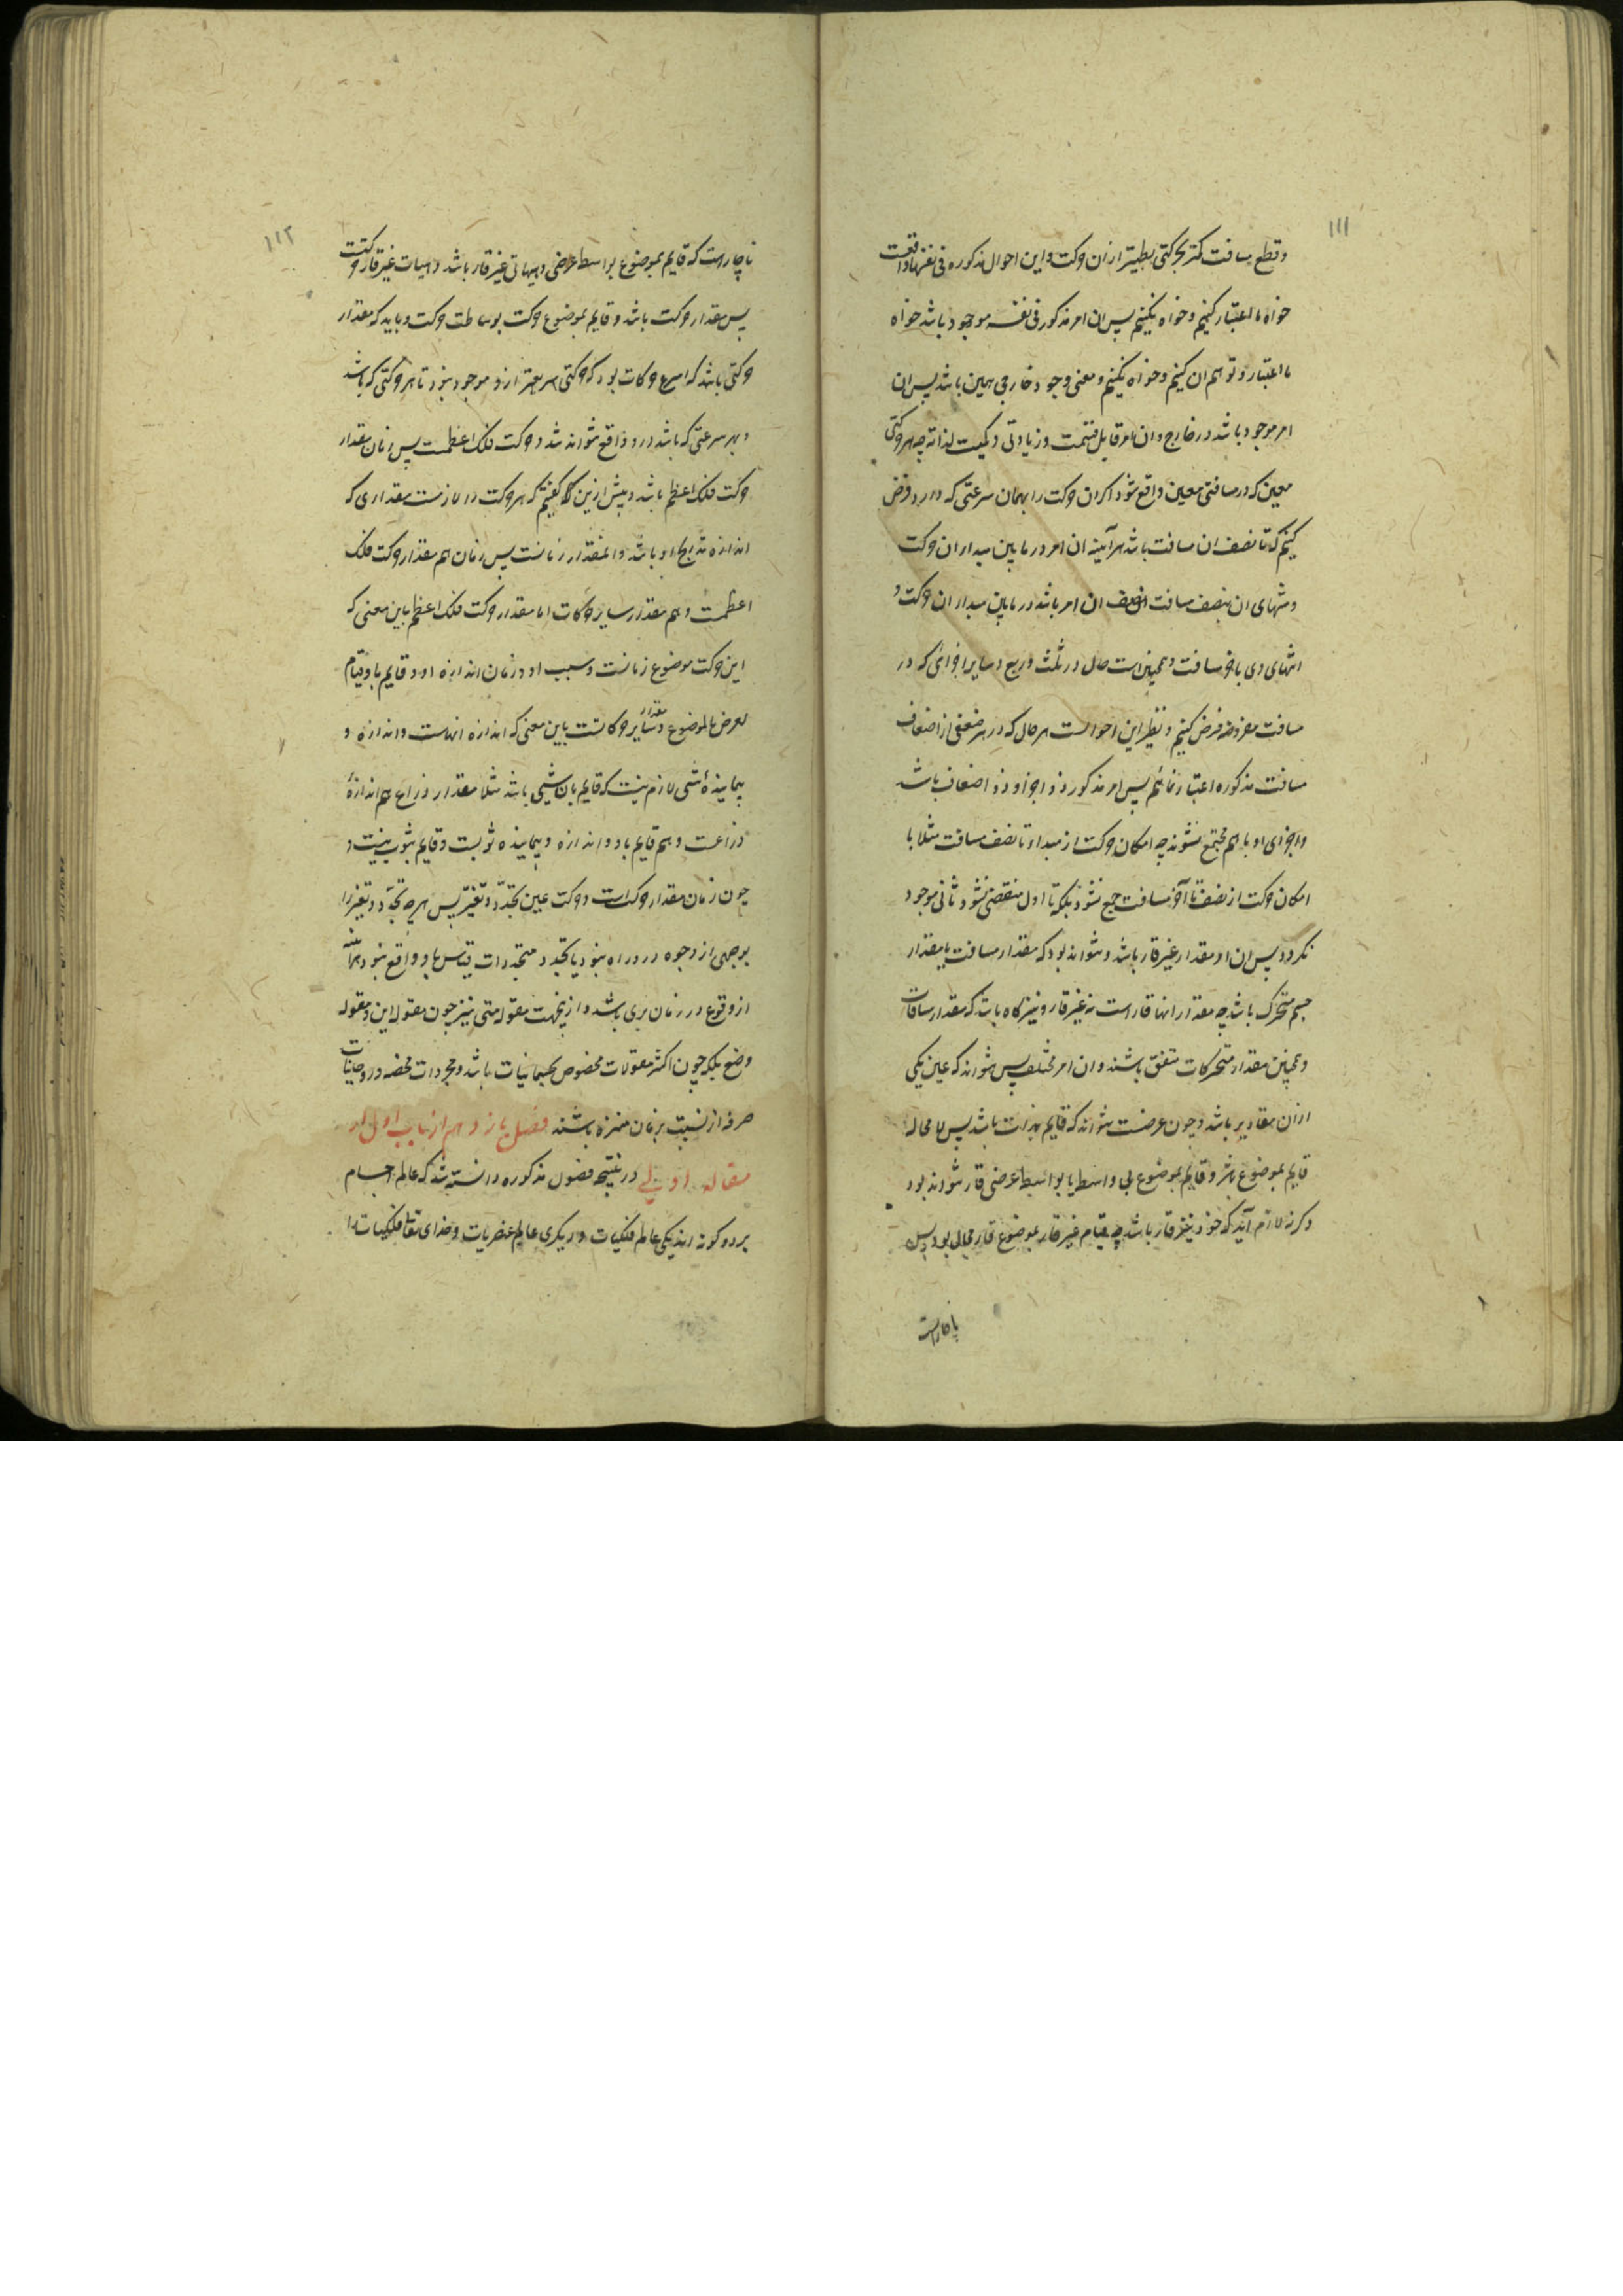 ۱۱۱
و قطع مسافت کمتر بحرکتی بطیتر ازان حرکت و این احوال مذکوره فی نفسها واقعست
خواه ما اعتبار کنیم و خواه نکنیم پس ان امر مذکور فی نفسه موجود باشد خواه
ما اعتبار و توهم ان کنیم و خواه نکنیم و معنی وجود خارجی همین باشد پس ان
امر موجود باشد در خارج و ان امر قابل قسمت و زیادتی و کمیست لذاته چه هر حرکتی
معین که در مسافتی معین واقع شود اکر ان حرکت را بهمان سرعتی که دارد فرض
کنیم که تا نصف ان مسافت باشد هر آینه ان امر در مابین مبداء ان حرکت
و منتهای ان بنصف مسافت نصف ان امر باشد در مابین مبداء ان حرکت و
انتهای وی باخر مسافت و همچنین است حال در ثلث و ربع و سایر اجزائی که در
مسافت مفروضه فرض کنیم و نظیر این احوالست هر حال که در هر ضعفی از اضعاف
مسافت مذکوره اعتبار نمائیم پس امر مذکور ذو اجزا و ذو اضعاف باشد
و اجزای او با هم مجتمع نشوند چه امکان حرکت از مبداء تا نصف مسافت مثلا با
امکان حرکت از نصف تا آخر مسافت جمع نشود بلکه تا اول منقضی نشود ثانی موجود
نکردد پس ان امر مقدار غیر قار باشد و نتواند بود که مقدار مسافت یا مقدار
جسم متحرک باشد چه مقدار انها قار است نه غیر قار و نیز کاه باشد که مقدار مسافات
و همچنین مقدار متحرکات متفق باشند و ان امر مختلف پس نتواند که عین یکی
ازان مقادیر باشد و چون عرضست نتواند که قایم بذات باشد پس لا محاله
قایم بموضوع باشد و قایم بموضوع بی واسطه یا بواسطه عرضی قار نتواند بود
و کرنه لازم آید که خود نیز قار باشد چه قیام غیر قار بموضوع قار محال بود پس
ناچار است
۱۱۲
ناچار است که قایم بموضوع بواسطه عرضی و هیاتی غیر قار باشد و هیات غیر قار حرکتست
پس مقدار حرکت باشد و قایم بموضوع حرکت بوساطت حرکت و باید که مقدار
حرکتی باشد که اسرع حرکات بود که حرکتی سریعتر ازو موجود نبود تا هر حرکتی که باشد
و بهر سرعتی که باشد درو واقع تواند شد و حرکت فلک اعظمست پس زمان مقدار
حرکت فلک اعظم باشد و پیش ازین کفتیم که هر حرکت را لازمست مقداری که
اندازه تدریج او باشد و المقدار زمانست پس زمان هم مقدار حرکت فلک
اعظمست و هم مقدار سایر حرکات اما مقدار حرکت فلک اعظم باین معنی که
این حرکت موضوع زمانست و سبب او و زمان اندازه او و قایم باو قیام
العرض بالموضوع و مقدار سایر حرکاتست باین معنی که اندازه انهاست و اندازه و
پیماینده شی لازم نیست که قایم بان شی باشد مثلا مقدار ذراع هم اندازه
ذراعست و هم قایم باو و اندازه و پیماینده ثوبست و قایم بثوب نیست و
چون زمان مقدار حرکتست و حرکت عین تجدد و تغیر پس هر چه تجدد و تغیر را
بوجهی از وجوه در و راه نبود یا تجدد متجددات بقیاس باو واقع نبود
از وقوع در زمان بری باشد و ازینجهت مقوله متی نیز چون مقوله این و مقوله
وضع بلکه چون اکثر مقولات مخصوص بجسمانیات باشد و مجردات محضه و روحانیات
صرفه از نسبت بزمان منزه باشند فصل یازدهم از باب اول از
مقاله اولی در نتیجه فصول مذکوره دانسته شد که عالم اجسام
بر دو کونه اند یکی عالم فلکیات و دیکری عالم عنصریات و خدای تعالی فلکیات را